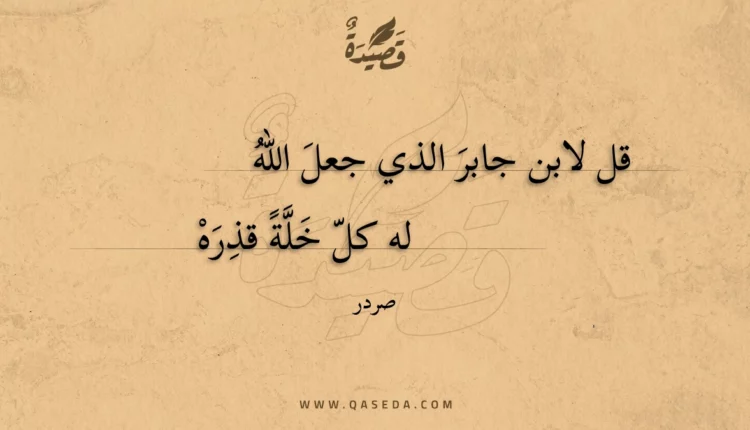 قَصِيْدَةٌ
قل لابن جابرَ الذي جعلَ اللهُ
له كلّ خَلَّةً قذِرَهْ
صردر
WWW.QASEDA.COM